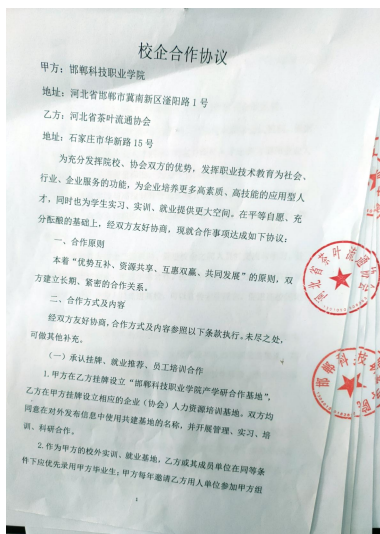 校企合作协议
甲方：邯郸科技职业学院
地址：河北省邯郸市冀南新区滏阳路1号
乙方：河北省茶叶流通协会
地址：石家庄市华新路15号
为充分发挥院校、协会双方的优势，发挥职业技术教育为社会、
行业、企业服务的功能，为企业培养更多高素质、高技能的应用型人
才，同时也为学生实习、实训、就业提供更大空间。在平等自愿、充
分酝酿的基础上，经双方友好协商，现就合作事项达成如下协议：
一、合作原则
本着“优势互补、资源共享、互惠双赢、共同发展”的原则，双
方建立长期、紧密的合作关系。
二、合作方式及内容
经双方友好协商，合作方式及内容参照以下条款执行。未尽之处，
可做其他补充。
（一）承认挂牌、就业推荐、员工培训合作
1.甲方在乙方挂牌设立“邯郸科技职业学院产学研合作基地”，
乙方在甲方挂牌设立相应的企业（协会）人力资源培训基地。双方均
同意在对外发布信息中使用共建基地的名称，并开展管理、实习、培
训、科研合作。
2.作为甲方的校外实训、就业基地，乙方或其成员单位在同等条
件下应优先录用甲方毕业生；甲方每年邀请乙方用人单位参加甲方组
1
河北省茶叶流通协会
邯郸科技